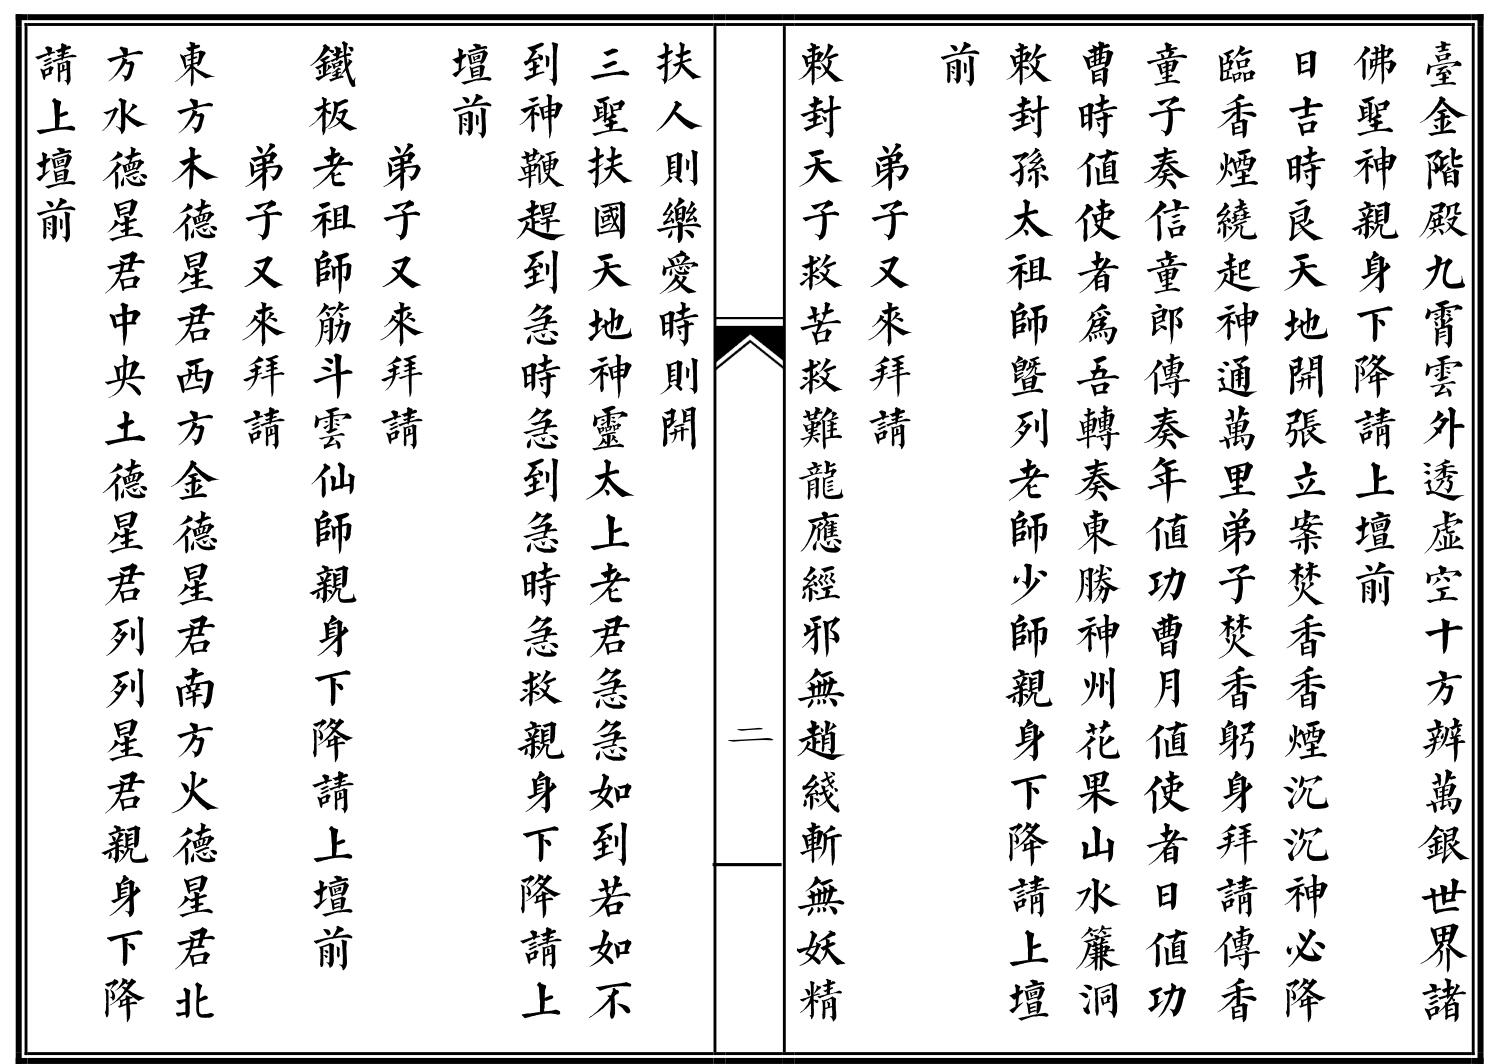 臺金階殿九霄雲外透虛空十方辨萬銀世界諸
佛聖神親身下降請上壇前
日吉時良天地開張立案焚香香煙沉沉神必降
臨香煙繞起神通萬里弟子焚香躬身拜請傳香
童子奏信童郎傳奏年值功曹月值使者日值功
曹時值使者爲吾轉奏東勝神州花果山水簾洞
敕封孫太祖師暨列老師少師親身下降請上壇
前
弟子又來拜請
敕封天子救苦救難龍應經邪無趙綫斬無妖精
二
扶人則樂愛時則開
三聖扶國天地神靈太上老君急急如到若如不
到神鞭趕到急時急到急時急救親身下降請上
壇前
弟子又來拜請
鐵板老祖師筋斗雲仙師親身下降請上壇前
弟子又來拜請
東方木德星君西方金德星君南方火德星君北
方水德星君中央土德星君列列星君親身下降
請上壇前